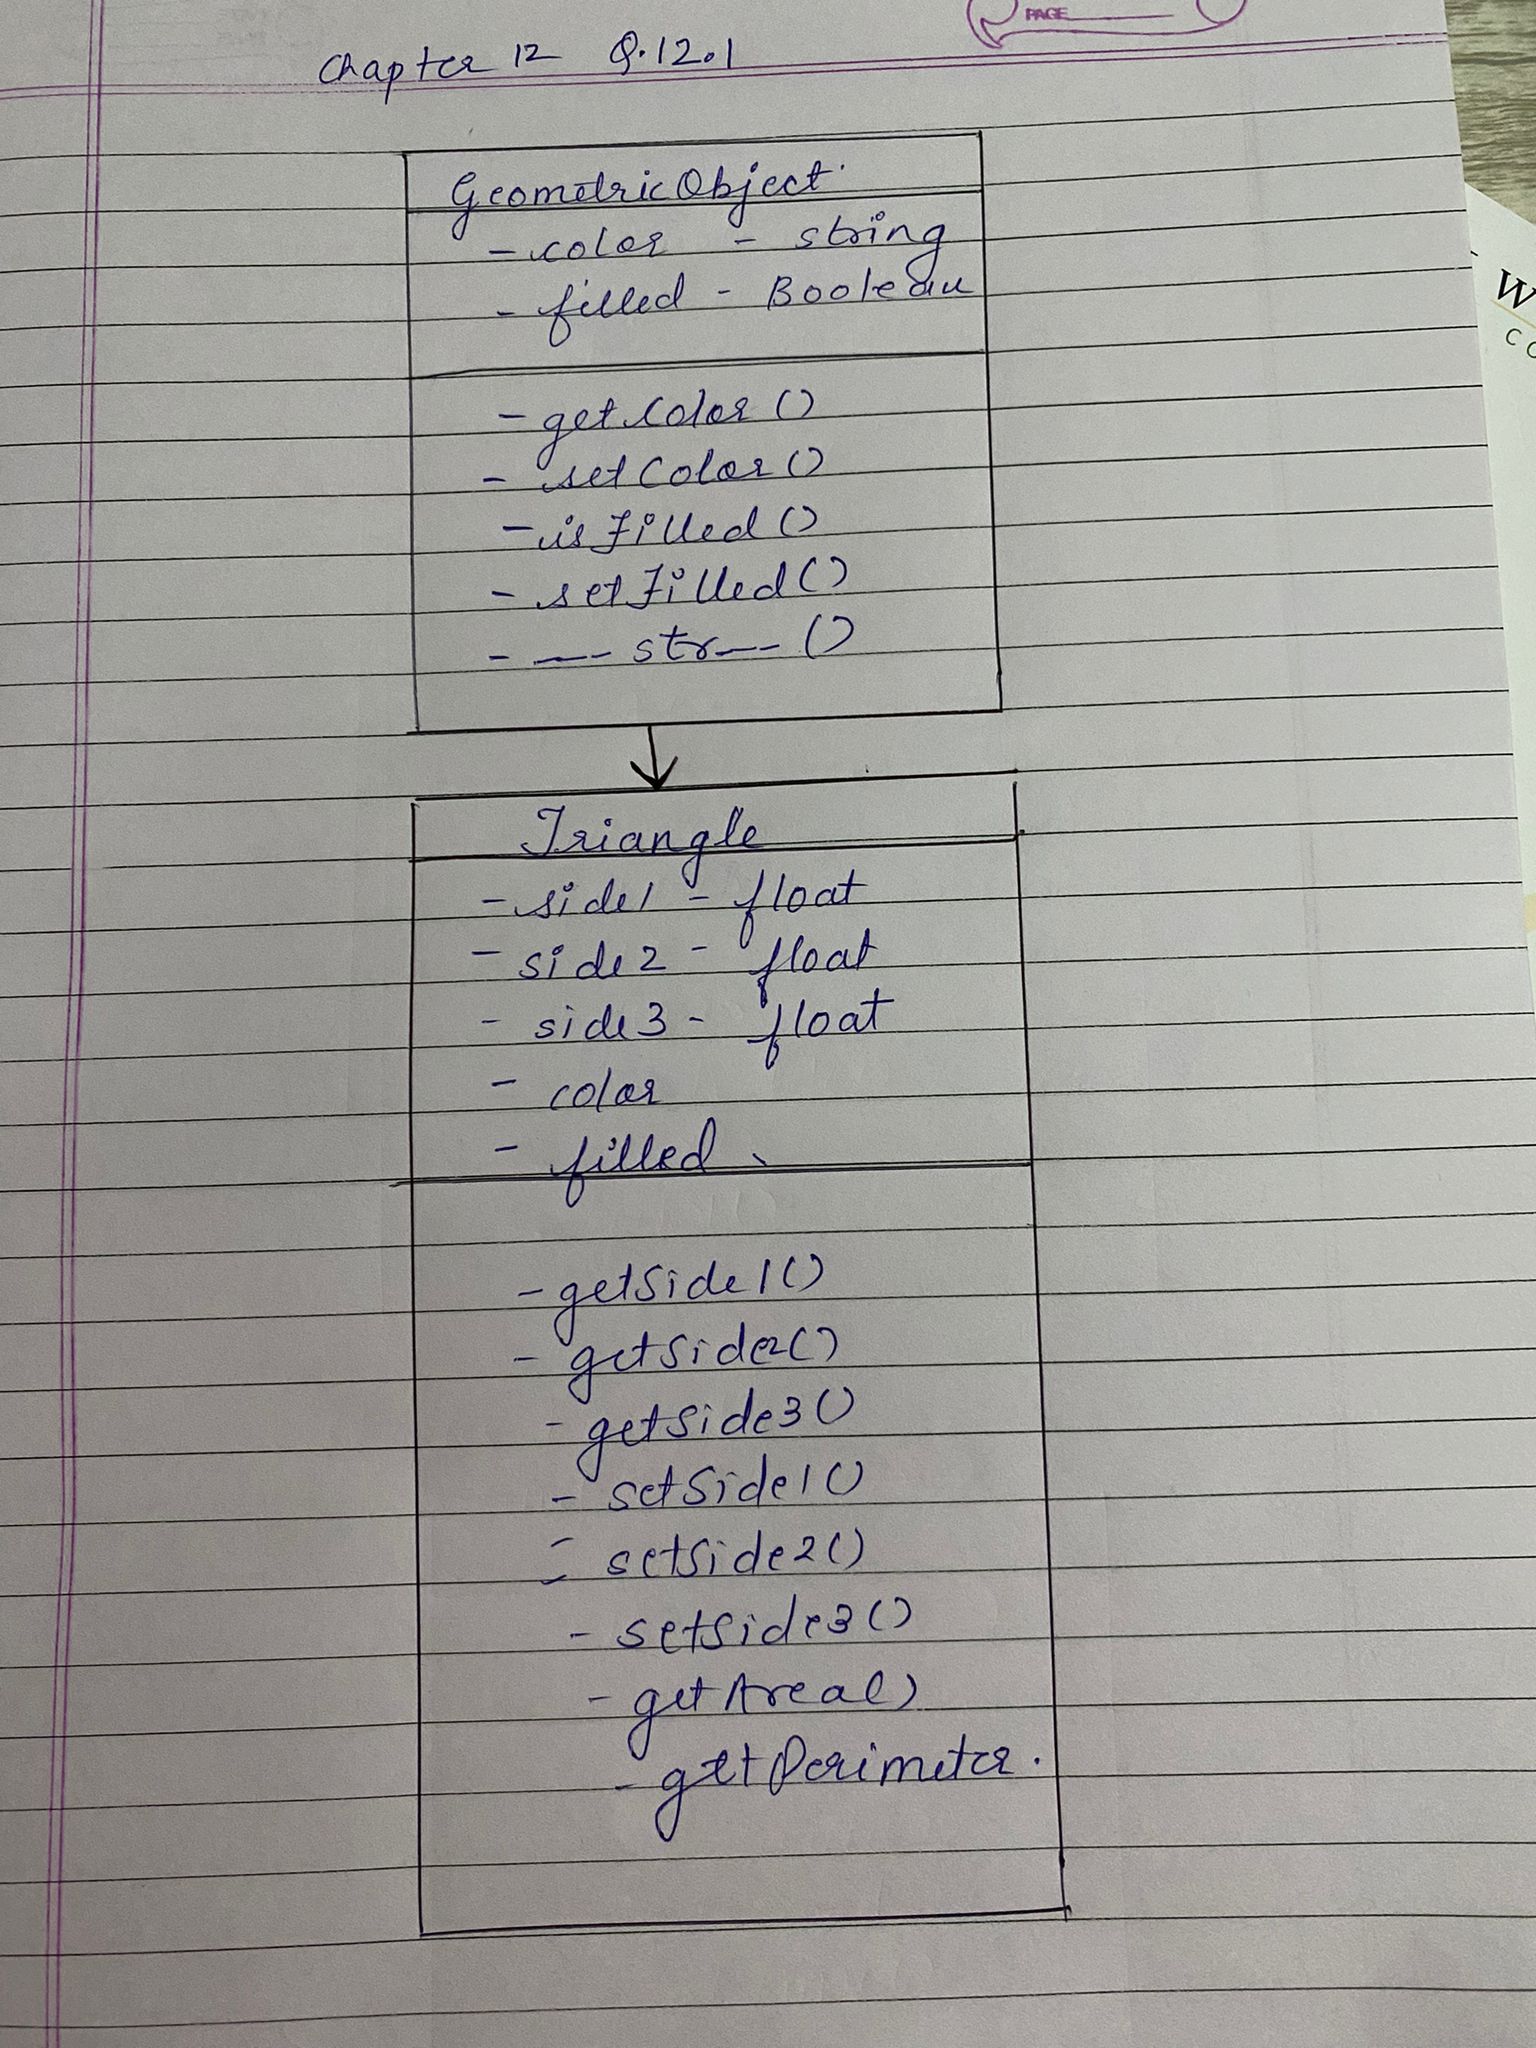 PAGE
Chapter 12 Q.12.1
GeometricObject
- color - string
- filled - Boolean
- getColor ()
- setColor ()
- isFilled ()
- setFilled ()
- __str__ ()
Triangle
- side1 - float
- side2 - float
- side3 - float
- color
- filled
- getSide1()
- getSide2()
- getSide3()
- setSide1()
- setSide2()
- setSide3()
- getArea()
- getPerimeter.
W
CO